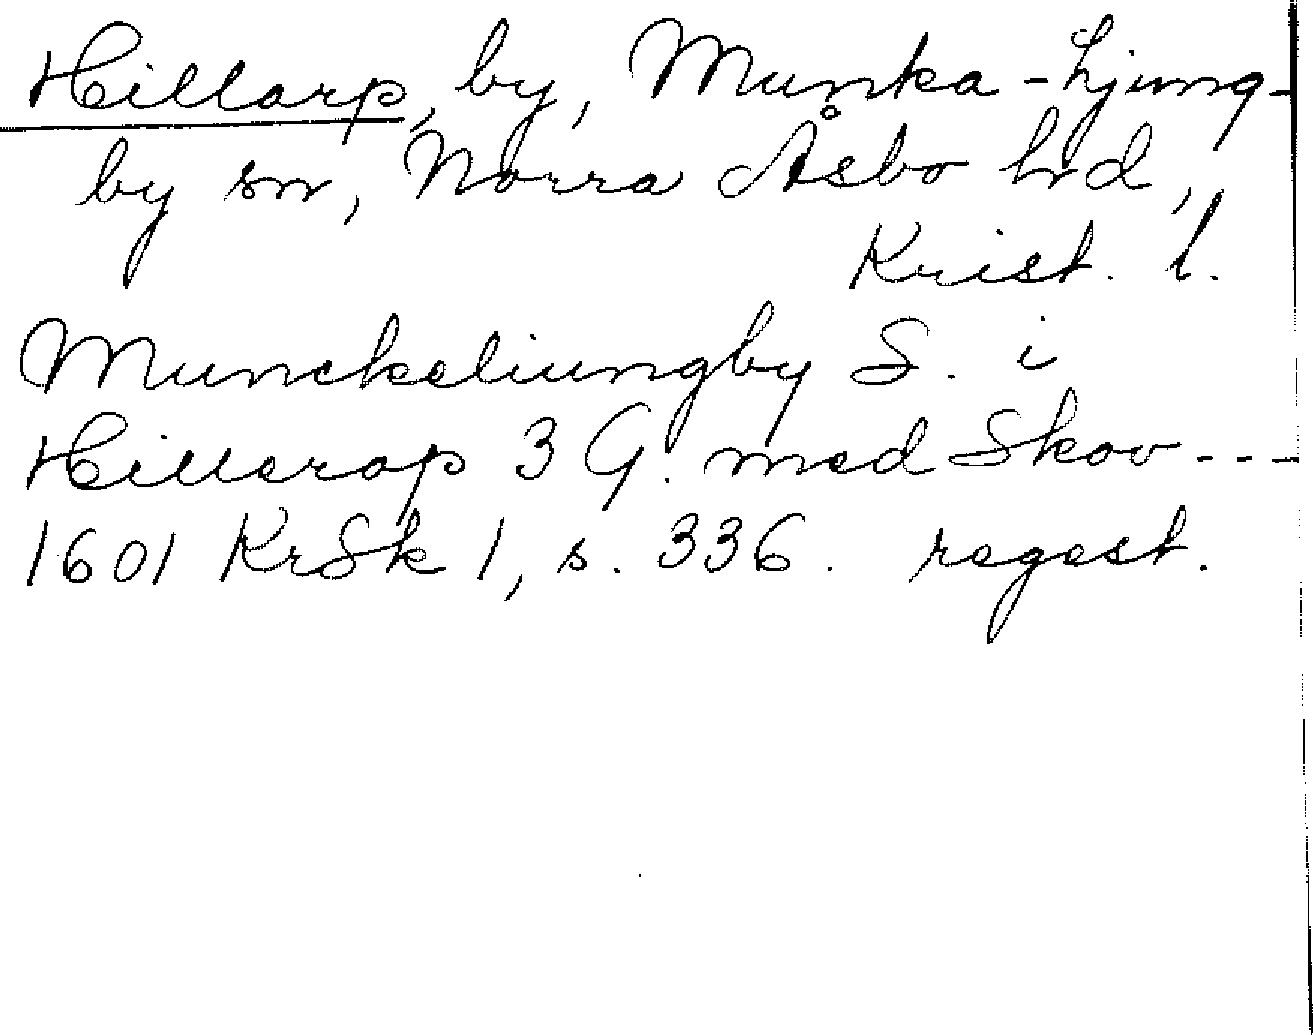 Hillarp, by, Munka-Ljung-
by sn, Norra Åsbo hd,
Krist. l.
Munckeliungby S. i
Hillerop 3 G. med Skov ---
1601 KrSk 1, s. 336. regest.